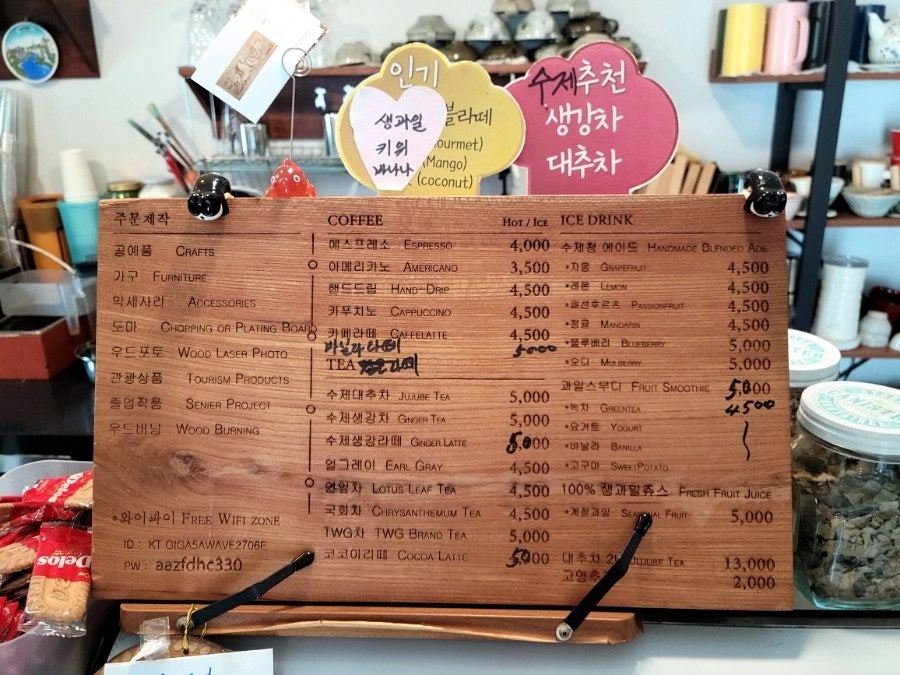 인기
블라떼
(Gourmet)
(Mango)
(coconut)
생과일
키위
바나나
수제추천
생강차
대추차
주문제작
공예품 CRAFTS
가구 FURNITURE
악세사리 ACCESSORIES
도마 CHOPPING OR PLATING BOARD
우드포토 WOOD LASER PHOTO
관광상품 TOURISM PRODUCTS
졸업작품 SENIER PROJECT
우드버닝 WOOD BURNING
*와이파이 FREE WIFI ZONE
ID : KT GIGA5AWAVE2706F
PW : aazfdhc330
COFFEE HOT / ICE
에스프레소 ESPRESSO 4,000
아메리카노 AMERICANO 3,500
핸드드립 HAND-DRIP 4,500
카푸치노 CAPPUCCINO 4,500
카페라떼 CAFFELATTE 4,500
바닐라라떼 5000
TEA
수제대추차 JUJUBE TEA 5,000
수제생강차 GINGER TEA 5,000
수제생강라떼 GINGER LATTE 5,000
얼그레이 EARL GRAY 4,500
연잎차 LOTUS LEAF TEA 4,500
국화차 CHRYSANTHEMUM TEA 4,500
TWG차 TWG BRAND TEA 5,000
코코아라떼 COCOA LATTE 5,000
ICE DRINK
수제청 에이드 HANDMADE BLENDED ADE
*자몽 GRAPEFRUIT 4,500
*레몬 LEMON 4,500
*패션후르츠 PASSIONFRUIT 4,500
*청귤 MANDARIN 4,500
*블루베리 BLUEBERRY 5,000
*오디 MULBERRY 5,000
과일스무디 FRUIT SMOOTHIE 5,000
*녹차 GREENTEA 4500
*요거트 YOGURT
*바닐라 BANILLA
*고구마 SWEETPOTATO
100% 생과일쥬스 FRESH FRUIT JUICE
*계절과일 FRUIT 5,000
대추차 JUJUBE TEA 13,000
2,000
Delos